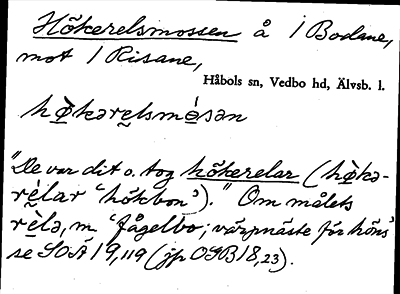 Hökerelsmossen å 1 Bodane,
mot 1 Risane,
Håbols sn, Vedbo hd, Älvsb. l.
hø̀kərelsmósən
"De var dit o. tog hökerelar (hø̀kə-
rèlar 'hökbon')." Om målets
rèlə, m. 'fågelbo; värpnäste för höns'
se SOÄ 19,119 (jp OGB 18,23).